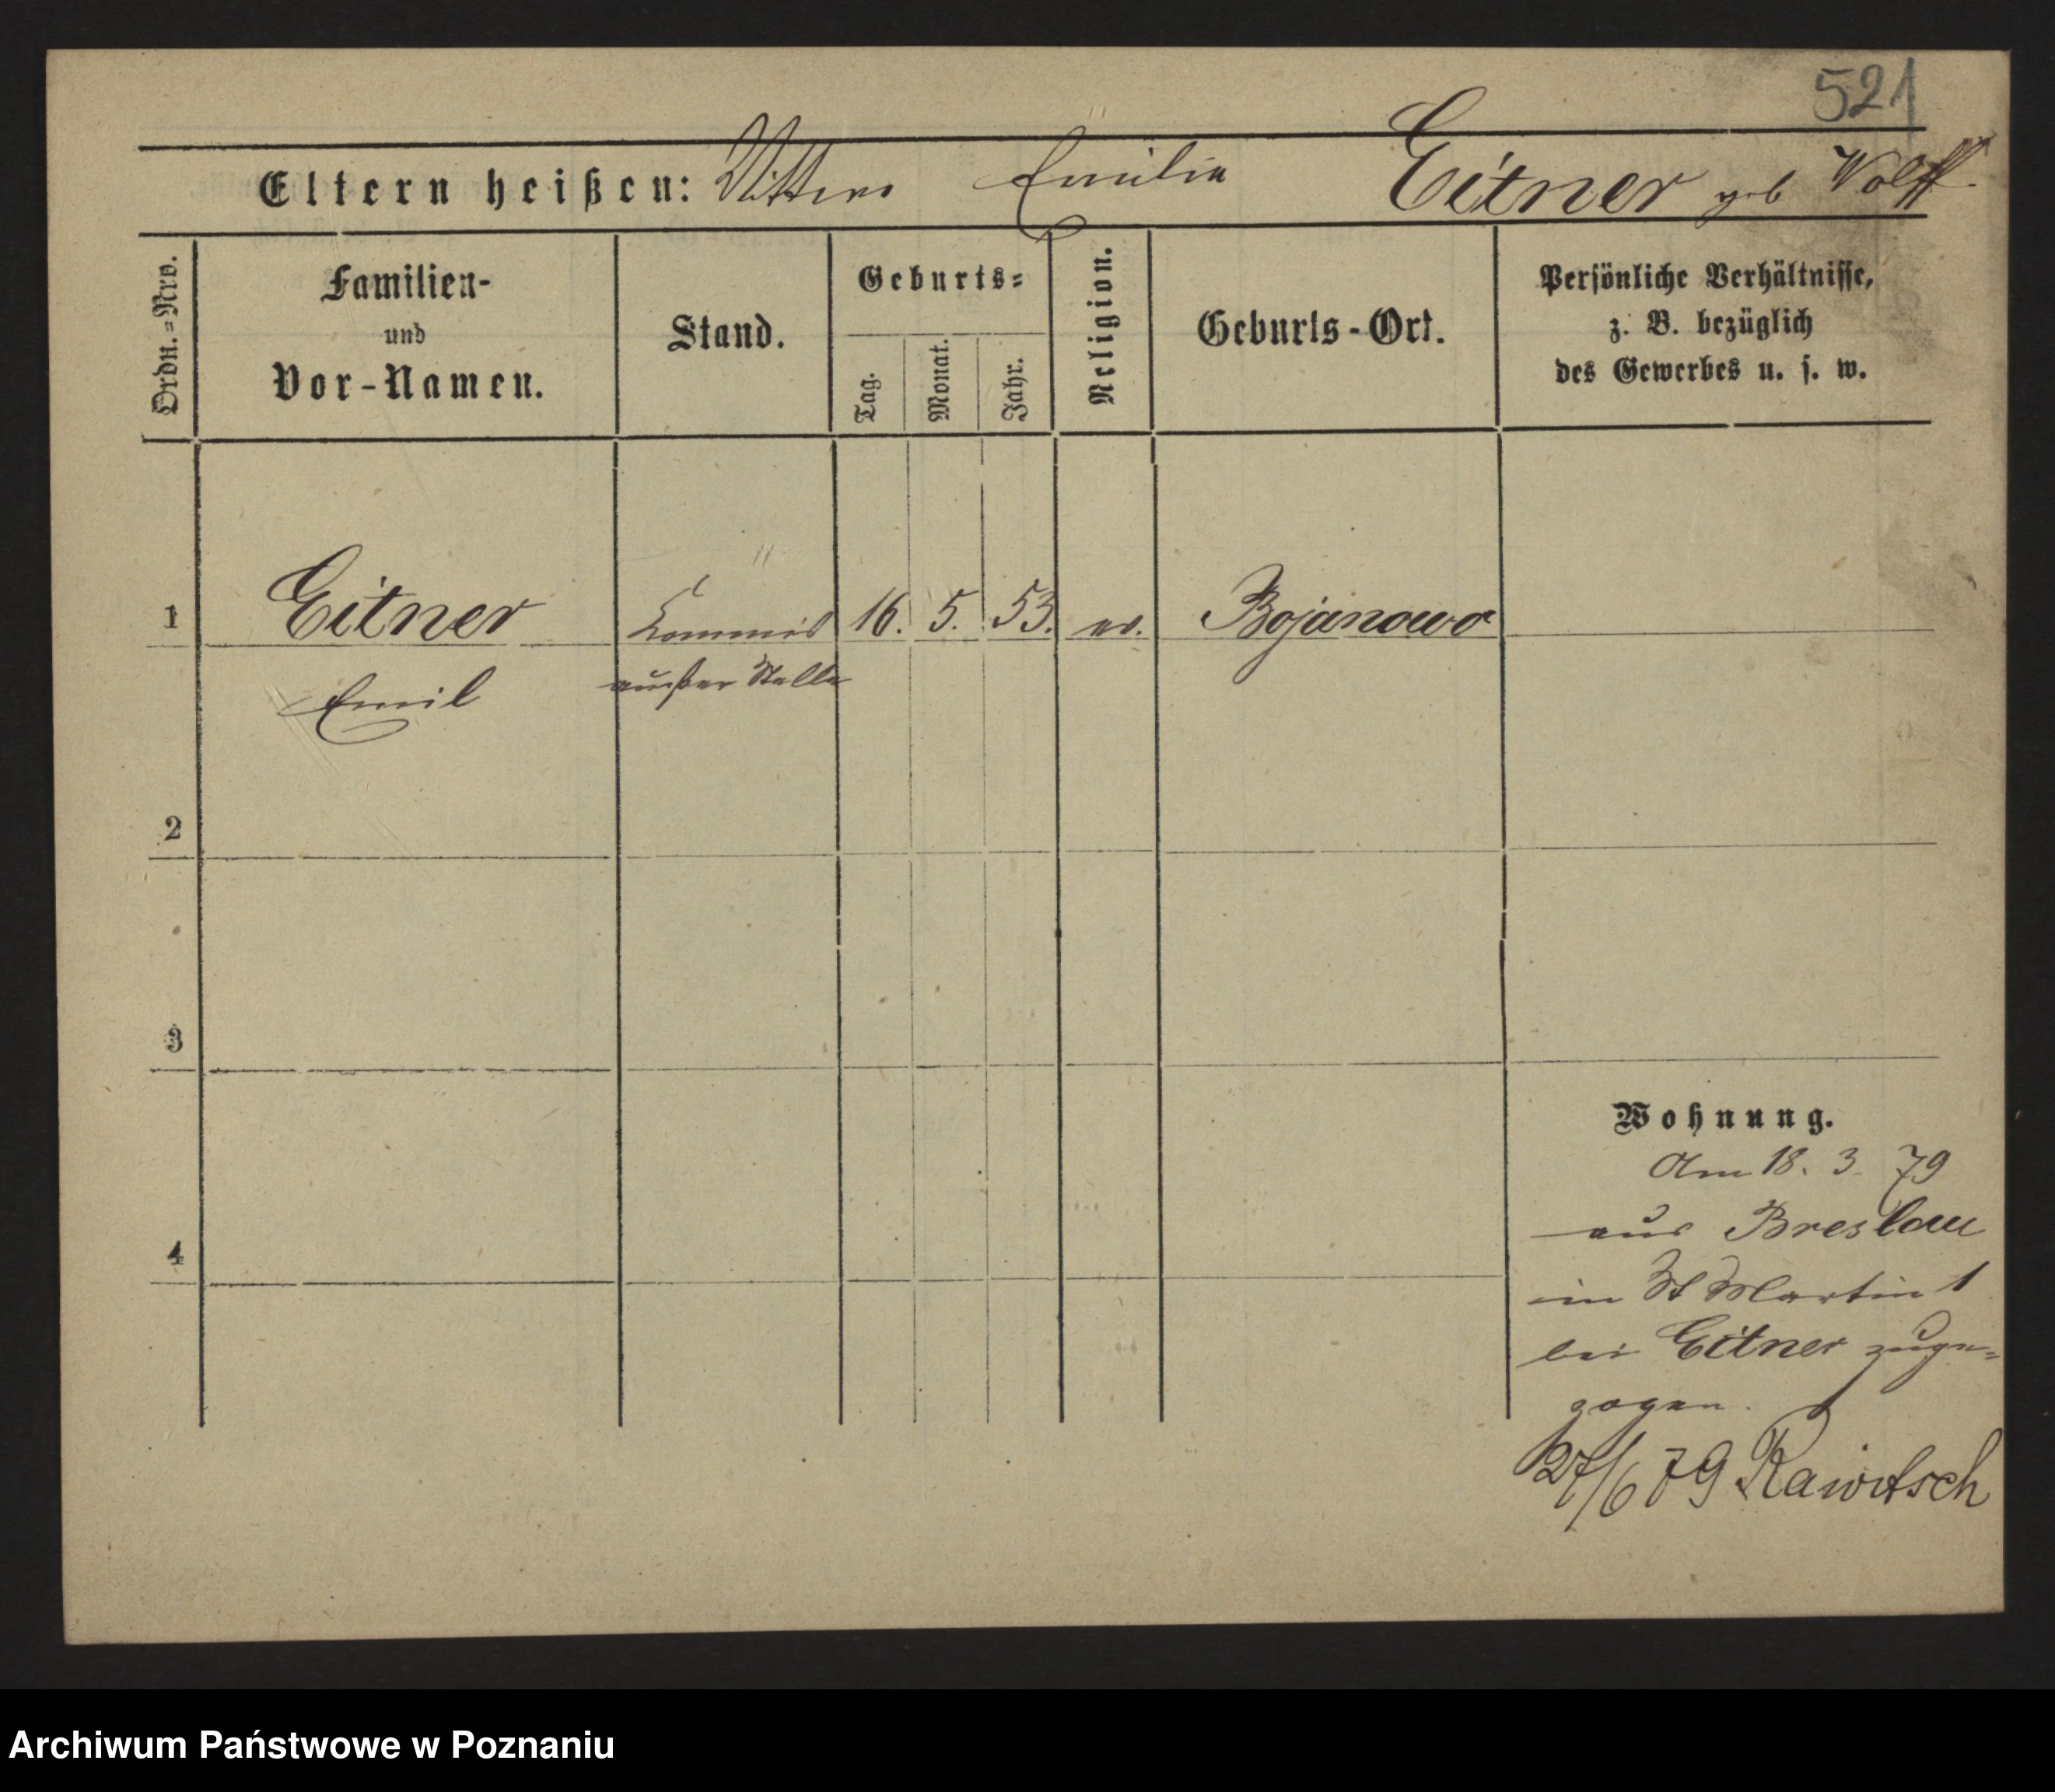 521
Eltern heißen: Wittwe Emilie Eitner geb Wolff
Ordn.=Nro.
Familien-
und
Vor-Namen.
Stand.
Geburts=
Tag.
Monat.
Jahr.
Religion.
Geburts-Ort.
Persönliche Verhältnisse,
z. B. bezüglich
des Gewerbes u. s. w.
1 Eitner Kommis 16. 5. 53. ev. Bojanowo
Emil außer Stelle
2
3
4
Wohnung.
Am 18. 3. 79
aus Breslau
in St Martin 1
bei Eitner zuge=
zogen.
27/6 79 Rawitsch
Archiwum Państwowe w Poznaniu